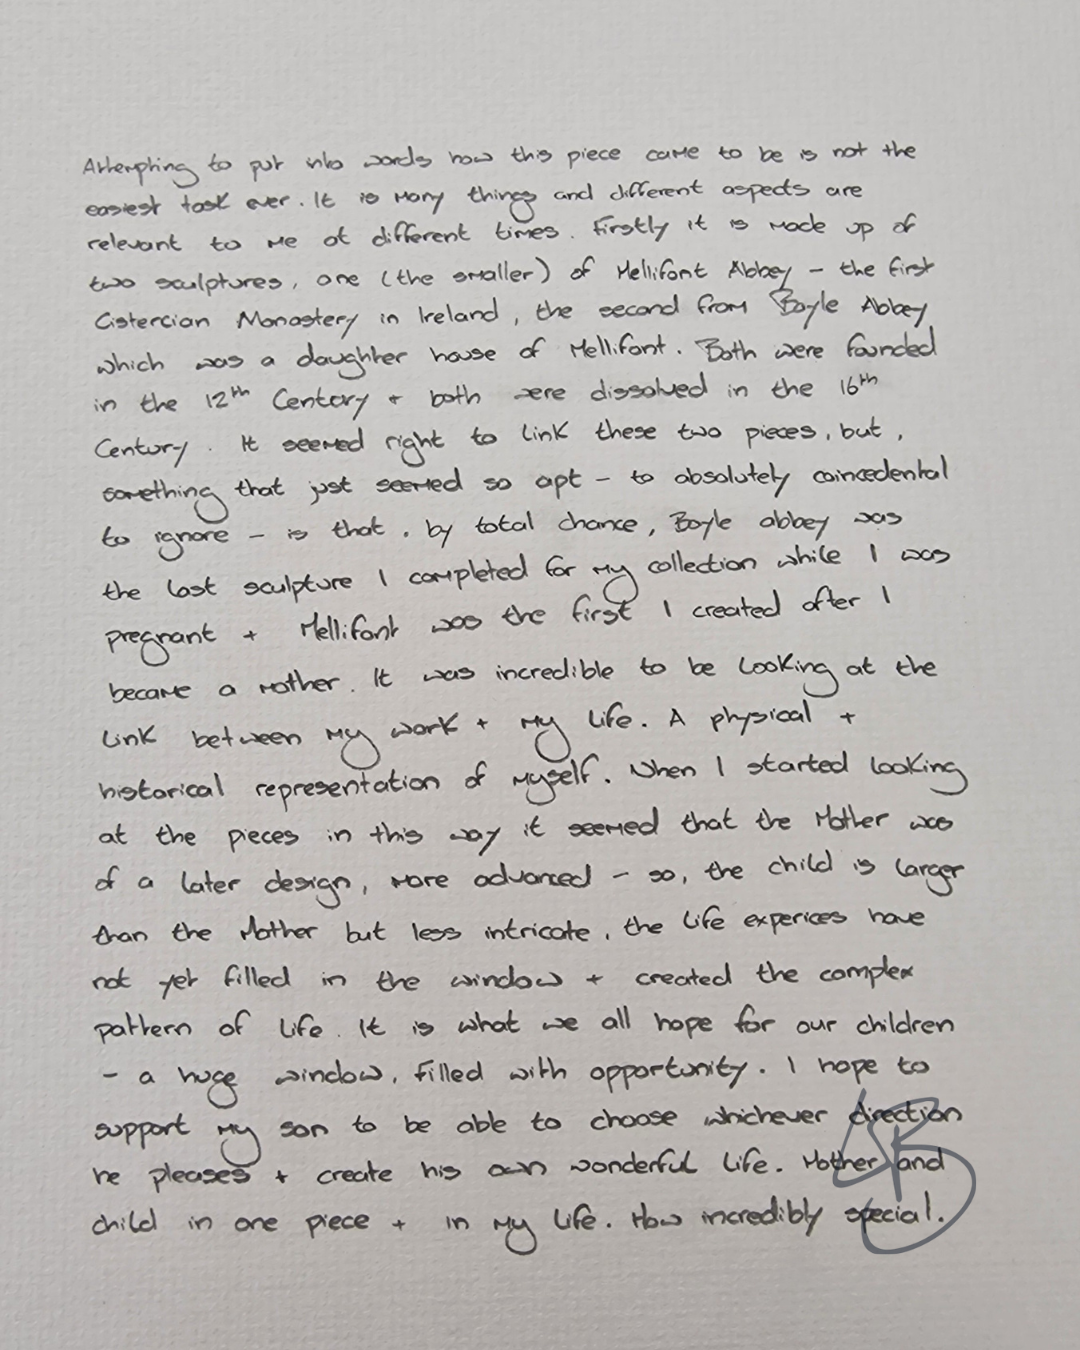 Attempting to put into words how this piece came to be is not the
easiest task ever. It is many things and different aspects are
relevant to me at different times. Firstly it is made up of
two sculptures, one (the smaller) of Mellifont Abbey - the first
Cistercian Monastery in Ireland, the second from Boyle Abbey
which was a daughter house of Mellifont. Both were founded
in the 12th Century + both were dissolved in the 16th
Century. It seemed right to link these two pieces, but,
something that just seemed so apt - to absolutely coincedental
to ignore - is that, by total chance, Boyle abbey was
the last sculpture I completed for my collection while I was
pregnant + Mellifont was the first I created after I
became a mother. It was incredible to be looking at the
link between my work + my life. A physical +
historical representation of myself. When I started looking
at the pieces in this way it seemed that the Mother was
of a later design, more advanced - so, the child is larger
than the Mother but less intricate, the life experices have
not yet filled in the window + created the complex
pattern of life. It is what we all hope for our children
- a huge window, filled with opportunity. I hope to
support my son to be able to choose whichever direction
he pleases + create his own wonderful life. Mother and
child in one piece + in my life. How incredibly special.